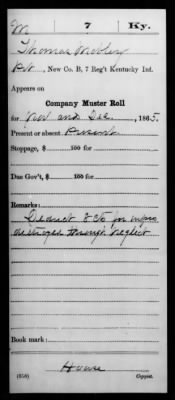 M | 7 | Ky.
Thomas Mobley
Pvt, New Co. B, 7 Reg't Kentucky Inf.
Appears on
Company Muster Roll
for Nov and Dec, 1865.
Present or absent Present
Stoppage, $ 100 for
Due Gov't, $ 100 for
Remarks:
Deduct 8 for
destroyed through neglect
Book mark:
Howe
(858) Copyist.